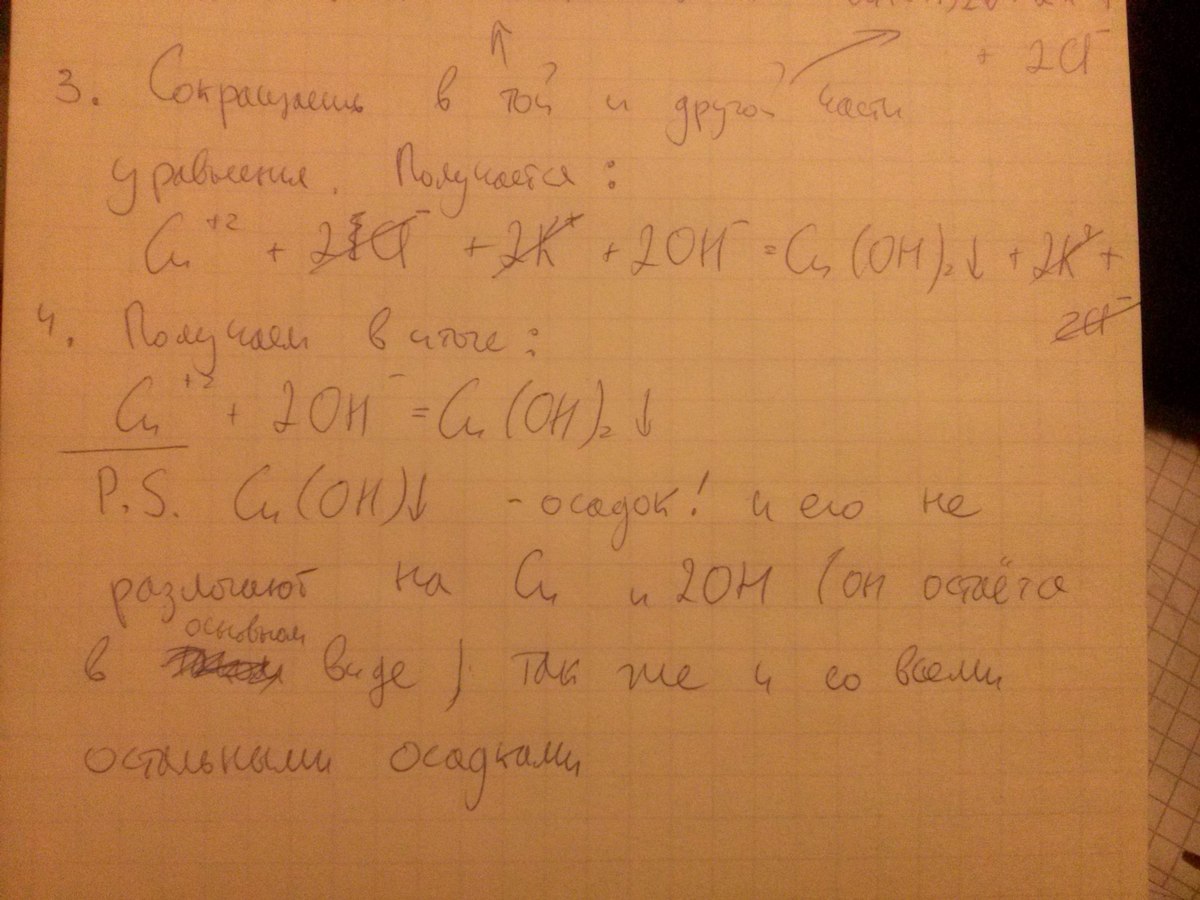 + 2Cl⁻
3. Сокращаешь в той и другой части
уравнения. Получается:
Cu⁺² + 2Cl⁻ + 2K⁺ + 2OH⁻ = Cu(OH)₂↓ + 2K⁺ +
2Cl⁻
4. Получаем в итоге:
Cu⁺² + 2OH⁻ = Cu(OH)₂↓
P.S. Cu(OH)↓ - осадок! и его не
разлогают на Cu и 2OH (он остаётся
в основном виде) так же и со всеми
остальными осадками